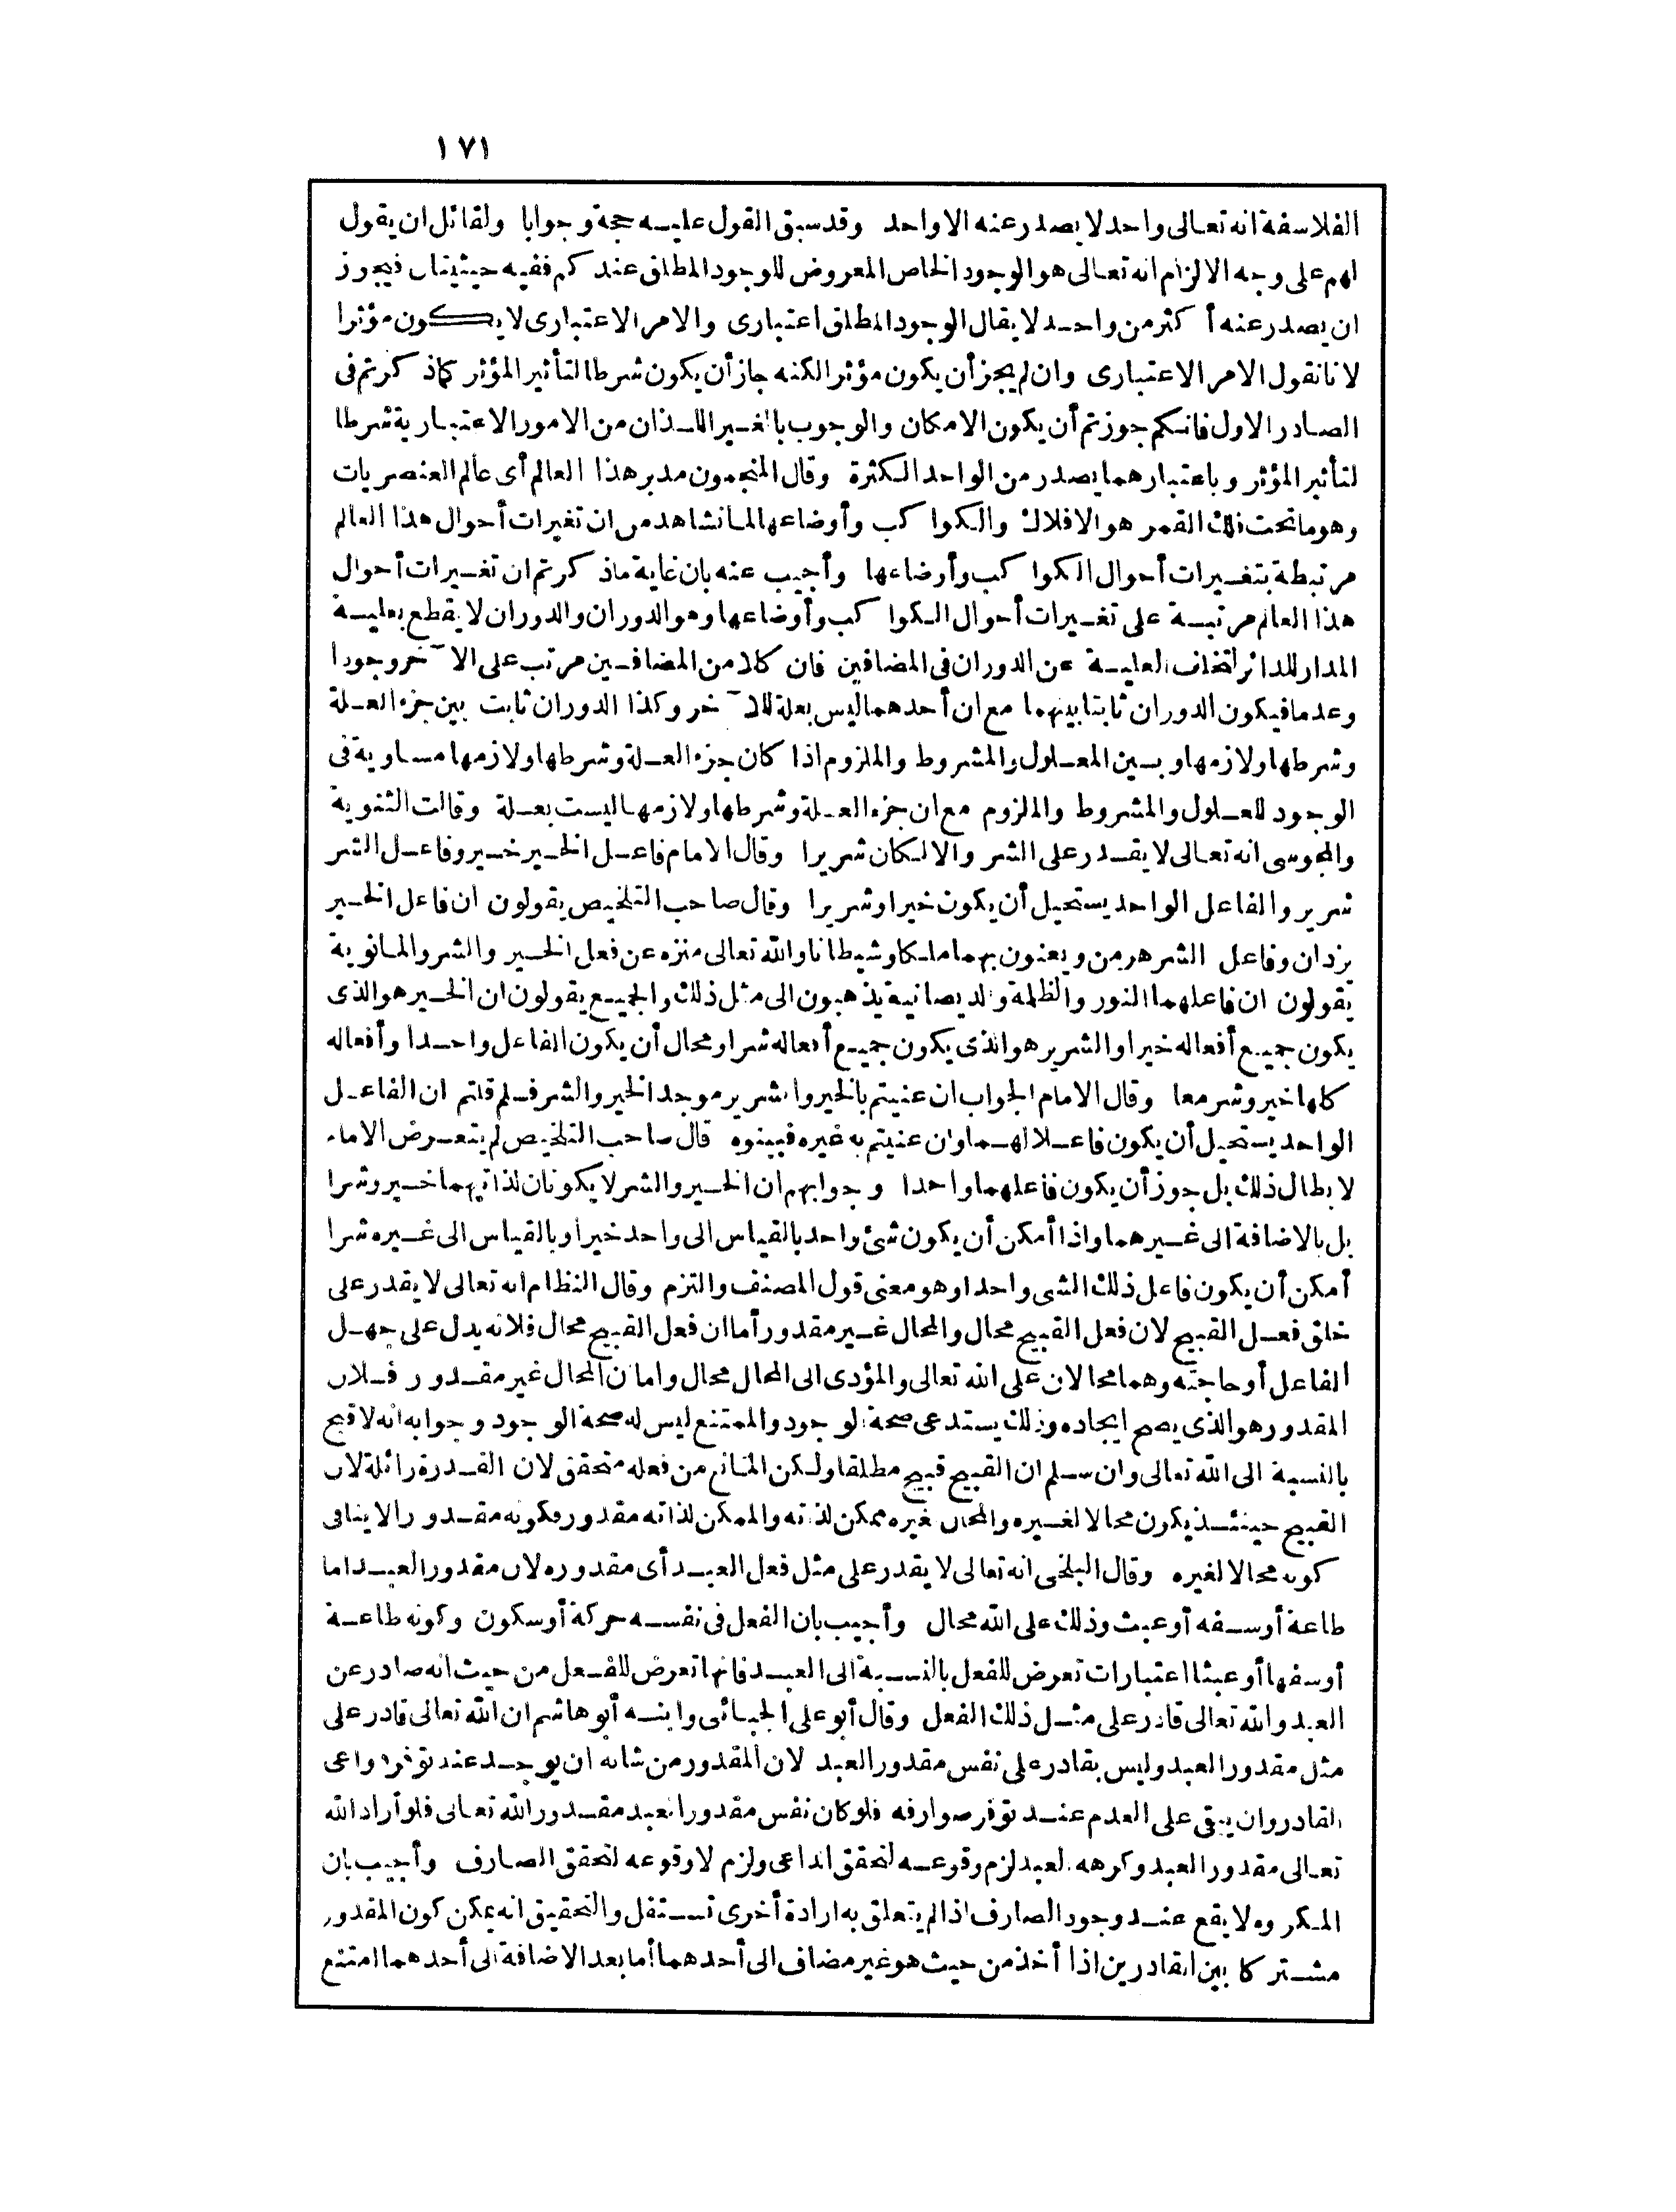 ١٧١
الفلاسفة انه تعالى واحد لا يصدر عنه الا واحد وقد سبق القول عليه حجة وجوابا ولقائل ان يقول
لهم على وجه الالزام انه تعالى هو الوجود الخاص المعروض للوجود المطلق عندكم ففيه حيثيتان فيجوز
ان يصدر عنه أكثر من واحد لا يقال الوجود المطلق اعتبارى والامر الاعتبارى لا يكون مؤثرا
لانا نقول الامر الاعتبارى وان لم يجز أن يكون مؤثرا لكنه جاز أن يكون شرطا لتأثير المؤثر كما ذكرتم فى
الصادر الاول فانكم جوزتم أن يكون الامكان والوجوب بالغير اللذان من الامور الاعتبارية شرطا
لتأثير المؤثر وباعتبارهما يصدر من الواحد الكثرة وقال المنجمون مدبر هذا العالم أى عالم العنصريات
وهو ما تحت فلك القمر هو الافلاك والكواكب وأوضاعها لما نشاهد من ان تغيرات أحوال هذا العالم
مرتبطة بتغيرات أحوال الكواكب وأوضاعها وأجيب عنه بان غاية ما ذكرتم ان تغيرات أحوال
هذا العالم مرتبة على تغيرات أحوال الكواكب وأوضاعها وهو الدوران والدوران لا يقطع بعلية
المدار للدائر لتخلف العلية عن الدوران فى المضافين فان كلا من المضافين مرتب على الآخر وجودا
وعدما فيكون الدوران ثابتا بينهما مع ان أحدهما ليس بعلة للآخر وكذا الدوران ثابت بين جزء العلة
وشرطها ولازمها وبين المعلول والمشروط والملزوم اذا كان جزء العلة وشرطها ولازمها مساوية فى
الوجود للمعلول والمشروط والملزوم مع ان جزء العلة وشرطها ولازمها ليست بعلة وقالت الثنوية
والمجوسى انه تعالى لا يقدر على الشر والا لكان شريرا وقال الامام فاعل الخير خير وفاعل الشر
شرير والفاعل الواحد يستحيل أن يكون خيرا وشريرا وقال صاحب التلخيص يقولون ان فاعل الخير
يزدان وفاعل الشر هرمن ويعنون بهما ملكا وشيطانا والله تعالى منزه عن فعل الخير والشر والمانوية
يقولون ان فاعلهما النور والظلمة والديصانية يذهبون الى مثل ذلك والجميع يقولون ان الخير هو الذى
يكون جميع أفعاله خيرا والشرير هو الذى يكون جميع أفعاله شرا ومحال أن يكون الفاعل واحدا وأفعاله
كلها خير وشر معا وقال الامام الجواب ان عنيتم بالخير والشرير موجد الخير والشر فلم قلتم ان الفاعل
الواحد يستحيل أن يكون فاعلا لهما وان عنيتم به غيره فبينوه قال صاحب التلخيص لم يتعرض الامام
لابطال ذلك بل جوز أن يكون فاعلهما واحدا وجوابهم ان الخير والشر لا يكونان لذاتيهما خير وشرا
بل بالاضافة الى غيرهما واذا أمكن أن يكون شئ واحد بالقياس الى واحد خيرا وبالقياس الى غيره شرا
أمكن أن يكون فاعل ذلك الشى واحدا وهو معنى قول المصنف والتزم وقال النظام انه تعالى لا يقدر على
خلق فعل القبيح لان فعل القبيح محال والمحال غير مقدور أما ان فعل القبيح محال فلانه يدل على جهل
الفاعل أو حاجته وهما محالان على الله تعالى والمؤدى الى المحال محال واما ان المحال غير مقدور فلان
المقدور هو الذى يصح ايجاده وذلك يستدعى صحة الوجود والممتنع ليس له صحة الوجود وجوابه انه لا قبح
بالنسبة الى الله تعالى وان سلم ان القبيح قبيح مطلقا ولكن المانع من فعله متحقق لان القدرة زائلة لان
القبيح حينئذ يكون محالا لغيره والمحال غيره ممكن لذاته والممكن لذاته مقدور فكونه مقدورا لا ينافى
كونه محالا لغيره وقال البلخى انه تعالى لا يقدر على مثل فعل العبد أى مقدوره لان مقدور العبد اما
طاعة أو سفه أو عبث وذلك على الله محال وأجيب بان الفعل فى نفسه حركة أو سكون وكونه طاعة
أو سفها أو عبثا اعتبارات تعرض للفعل بالنسبة الى العبد فانها تعرض للفعل من حيث انه صادر عن
العبد والله تعالى قادر على مثل ذلك الفعل وقال أبو على الجبائى وابنه أبو هاشم ان الله تعالى قادر على
مثل مقدور العبد وليس بقادر على نفس مقدور العبد لان المقدور من شانه ان يوجد عند توفر دواعى
القادر وان يبقى على العدم عند توفر صوارفه فلو كان نفس مقدور العبد مقدور الله تعالى فلو أراد الله
تعالى مقدور العبد وكرهه العبد لزم وقوعه لتحقق الداعى ولزم لا وقوعه لتحقق الصارف وأجيب بان
المكروه لا يقع عند وجود الصارف اذا لم يتعلق به ارادة أخرى تستقل والتحقيق انه يمكن كون المقدور
مشتركا بين القادرين اذا أخذ من حيث هو غير مضاف الى أحدهما أما بعد الاضافة الى أحدهما امتنع